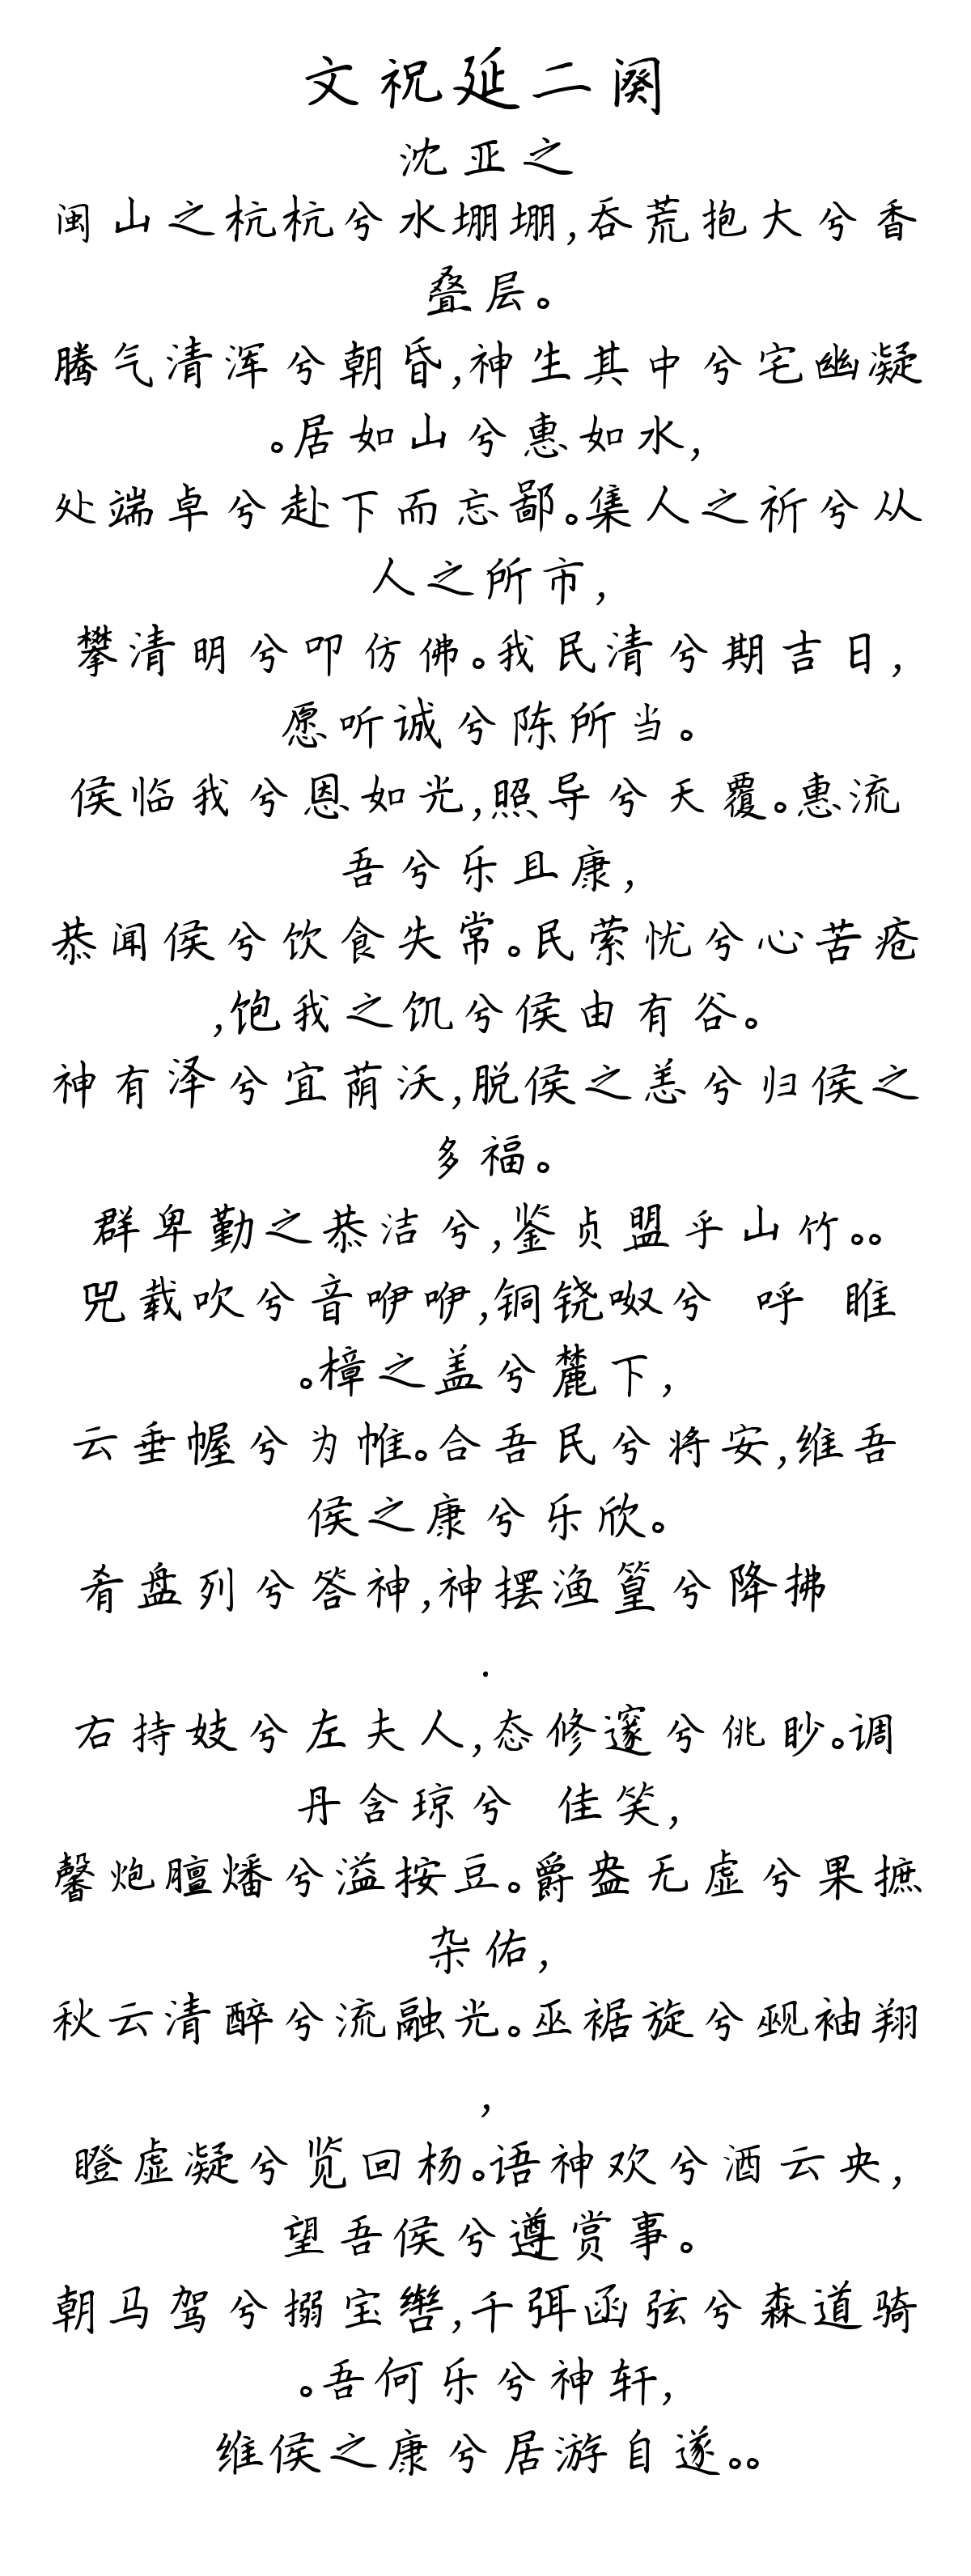 文祝延二阕
沈亚之
闽山之杭杭兮水堋堋,吞荒抱大兮香
叠层。
腾气清浑兮朝昏,神生其中兮宅幽凝
。居如山兮惠如水,
处端卓兮赴下而忘鄙。集人之祈兮从
人之所市,
攀清明兮叩仿佛。我民清兮期吉日,
愿听诚兮陈所当。
侯临我兮恩如光,照导兮天覆。惠流
吾兮乐且康,
恭闻侯兮饮食失常。民萦忧兮心苦疮
,饱我之饥兮侯由有谷。
神有泽兮宜荫沃,脱侯之恙兮归侯之
多福。
群卑勤之恭洁兮,鉴贞盟乎山竹。。
兕载吹兮音咿咿,铜铙呶兮 呼 睢
。樟之盖兮麓下,
云垂幄兮为帷。合吾民兮将安,维吾
侯之康兮乐欣。
肴盘列兮答神,神摆渔篁兮降拂
.
右持妓兮左夫人,态修邃兮佻眇。调
丹含琼兮 佳笑,
馨炮膻燔兮溢按豆。爵盎无虚兮果摭
杂佑,
秋云清醉兮流融光。巫裾旋兮觋袖翔
,
瞪虚凝兮览回杨。语神欢兮酒云央,
望吾侯兮遵赏事。
朝马驾兮搦宝辔,千弭函弦兮森道骑
。吾何乐兮神轩,
维侯之康兮居游自遂。。